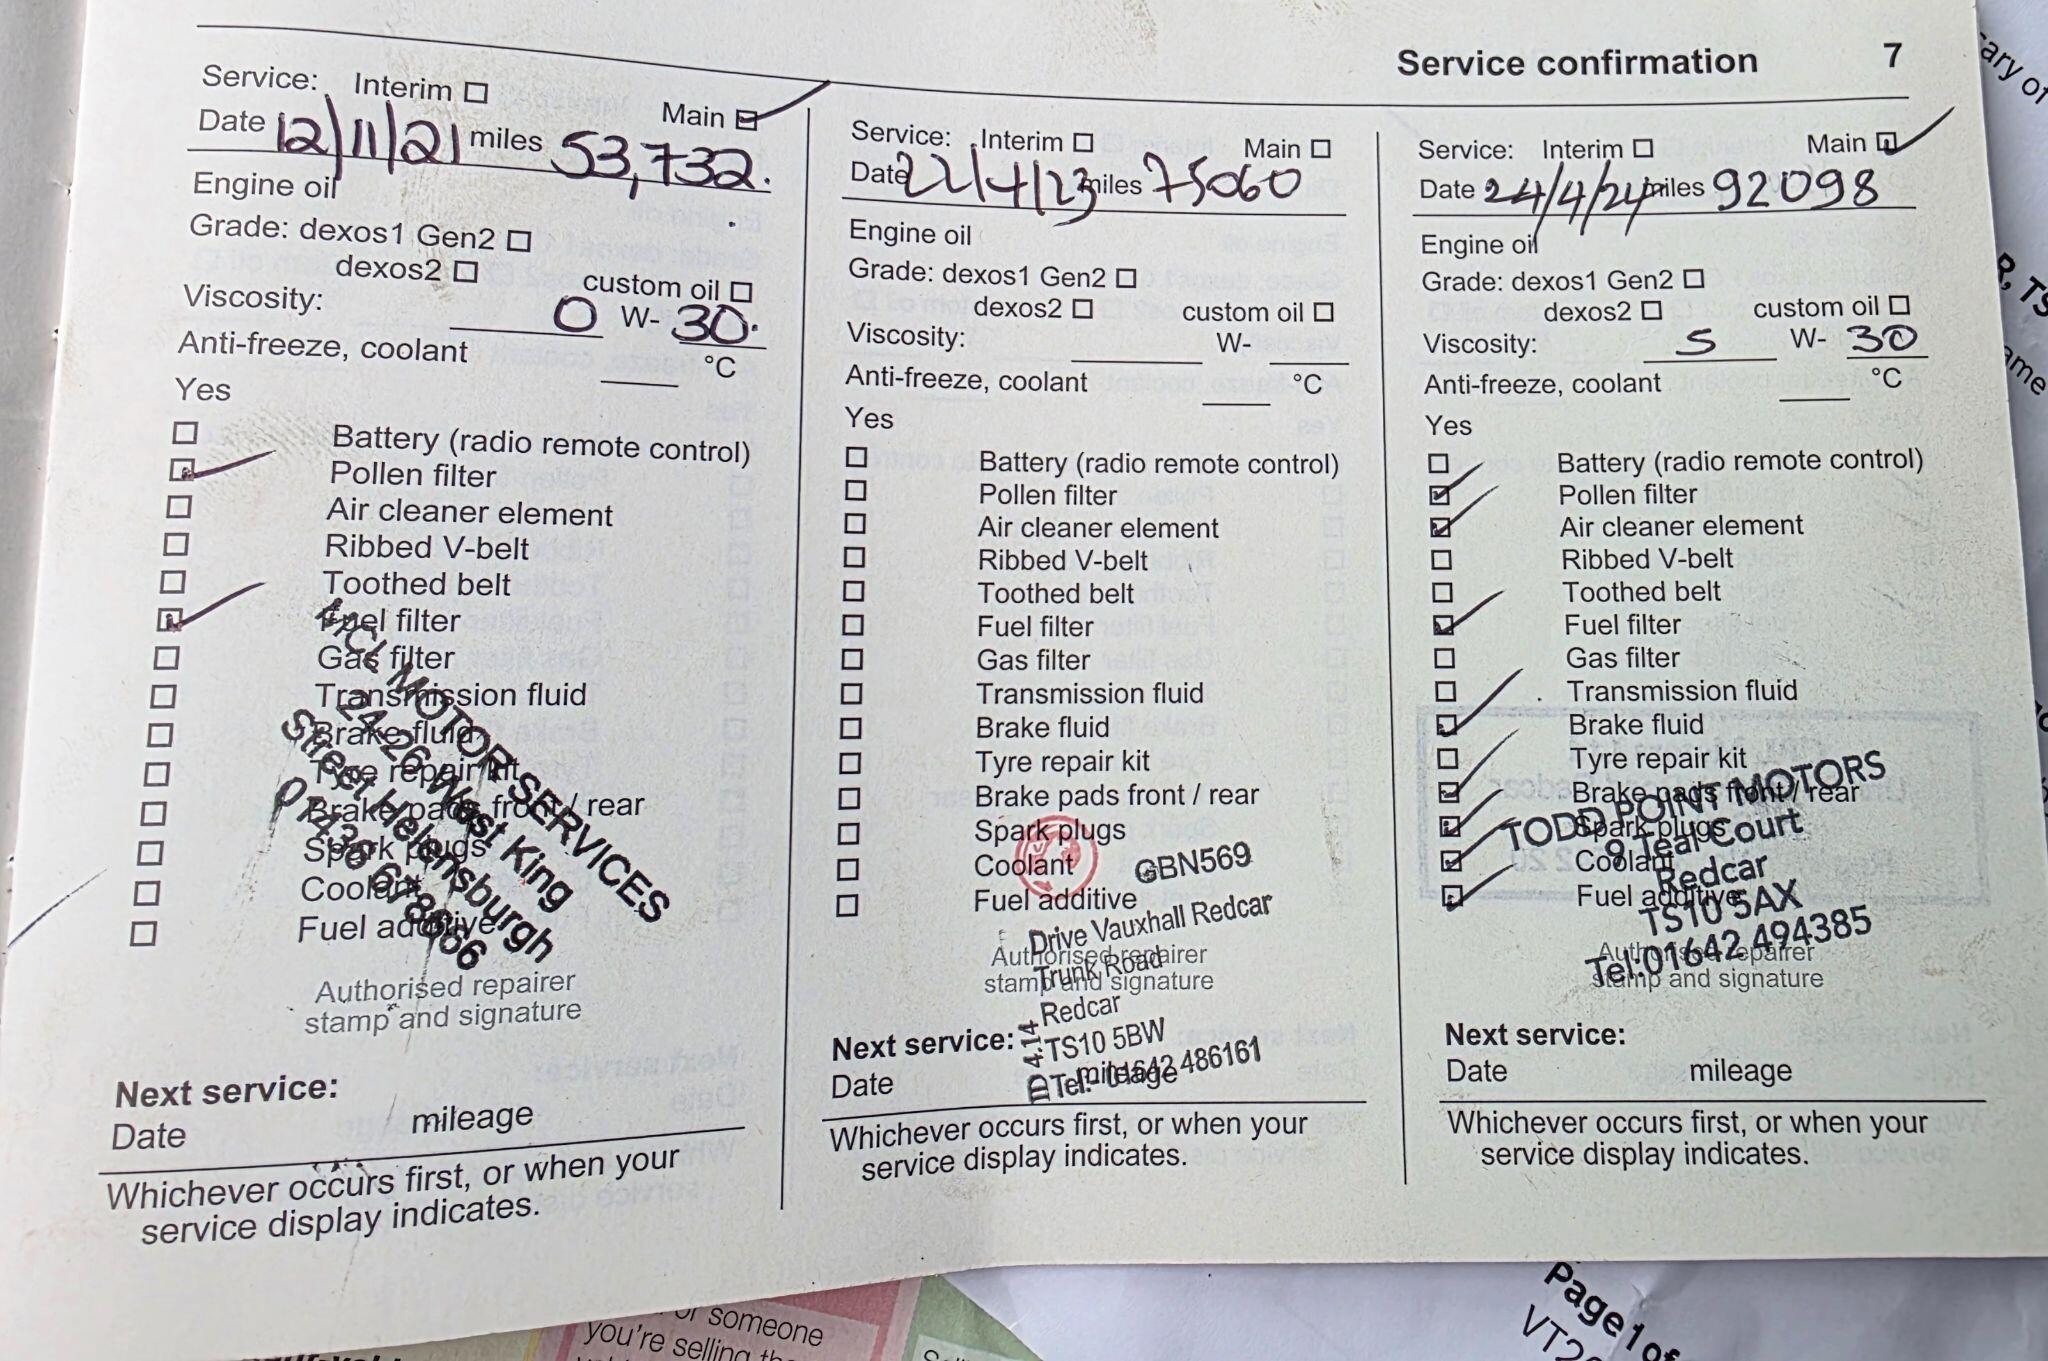 Service confirmation 7
Service: Interim
Main
Date 12/11/21 miles 53,732.
Engine oil
Grade: dexos1 Gen2
dexos2 custom oil
Viscosity: 0 W- 30.
Anti-freeze, coolant °C
Yes
Battery (radio remote control)
Pollen filter
Air cleaner element
Ribbed V-belt
Toothed belt
Fuel filter
Gas filter
Transmission fluid
Brake fluid
Tyre repair kit
Brake pads front / rear
Spark plugs
Coolant
Fuel additive
MOTOR SERVICES
24-26 West King
Street Helensburgh
01436 678666
Authorised repairer
stamp and signature
Next service:
Date mileage
Whichever occurs first, or when your
service display indicates.
Service: Interim Main
Date 22/4/23 miles 75060
Engine oil
Grade: dexos1 Gen2
dexos2 custom oil
Viscosity: W-
Anti-freeze, coolant °C
Yes
Battery (radio remote control)
Pollen filter
Air cleaner element
Ribbed V-belt
Toothed belt
Fuel filter
Gas filter
Transmission fluid
Brake fluid
Tyre repair kit
Brake pads front / rear
Spark plugs
Coolant
Fuel additive
GBN569
Drive Vauxhall Redcar
Trunk Road
Redcar
TS10 5BW
Tel:- 01642 486161
ID 4.14
Authorised repairer
stamp and signature
Next service:
Date mileage
Whichever occurs first, or when your
service display indicates.
Service: Interim Main
Date 24/4/24 miles 92098
Engine oil
Grade: dexos1 Gen2
dexos2 custom oil
Viscosity: 5 W- 30
Anti-freeze, coolant °C
Yes
Battery (radio remote control)
Pollen filter
Air cleaner element
Ribbed V-belt
Toothed belt
Fuel filter
Gas filter
Transmission fluid
Brake fluid
Tyre repair kit
Brake pads front / rear
Spark plugs
Coolant
Fuel additive
TODD POINT MOTORS
9 Teal Court
Redcar
TS10 5AX
Tel:01642 494385
Authorised repairer
stamp and signature
Next service:
Date mileage
Whichever occurs first, or when your
service display indicates.
or someone
you're selling
Page 1 of